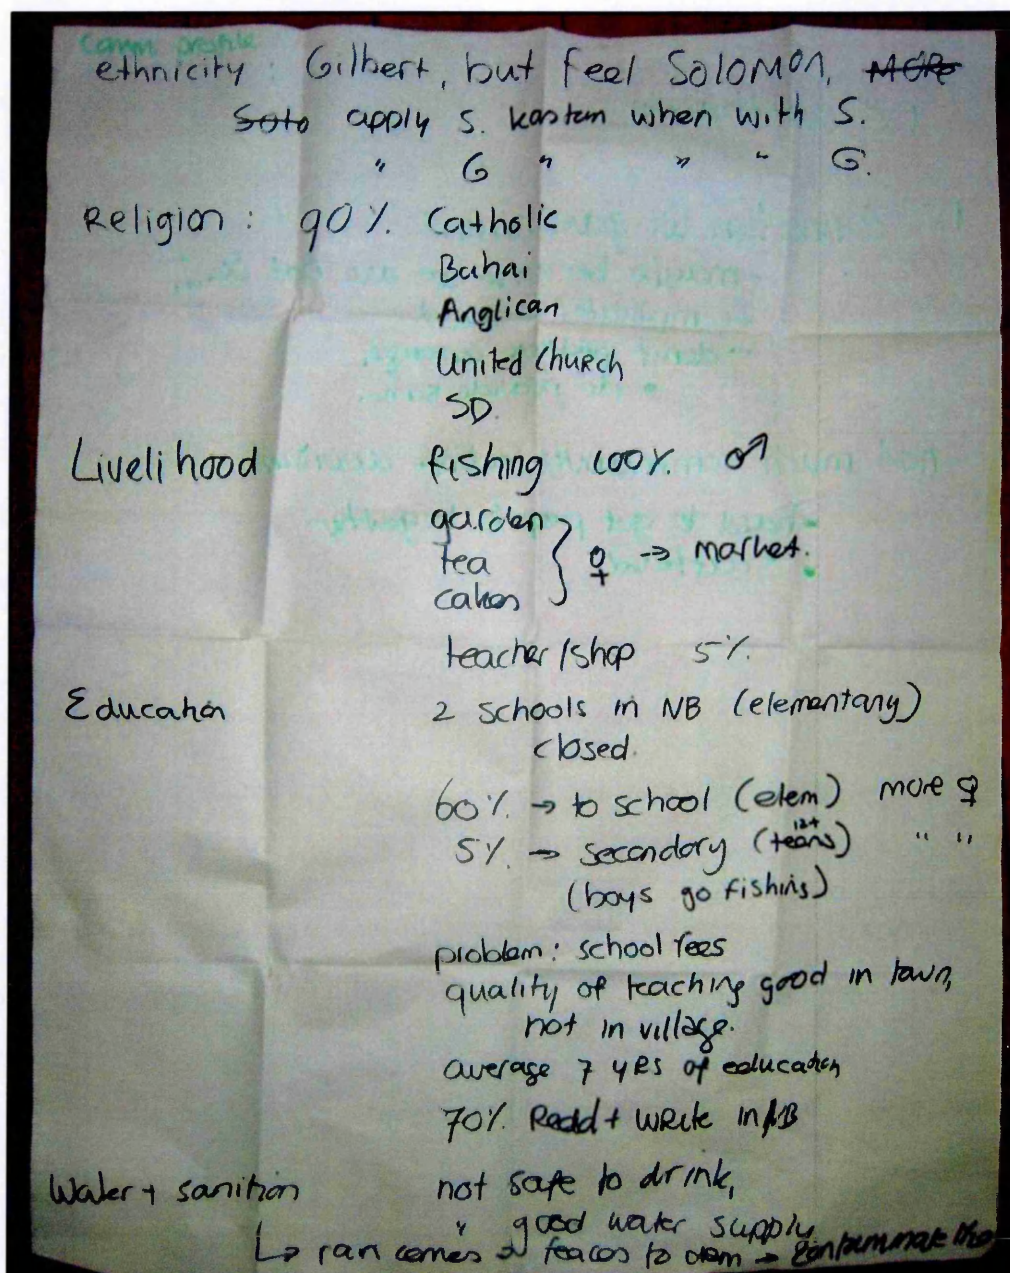 Comm profile
ethnicity : Gilbert, but feel SOLOMON, MORE
Soto apply S. kastem when with S.
" G " " " G.
Religion : 90%. Catholic
Bahai
Anglican
United ChuRch
SD.
Livelihood fishing 100%. ♂
garden
tea } ♀ → market.
cakes
teacher/shop 5%.
Education 2 schools in NB (elementary)
closed.
60%. → to school (elem) more ♀
5%. → secondary (teens) 12+ " "
(boys go fishing)
problem: school fees
quality of teaching good in town,
not in village.
average 7 yRS of education
70%. Read + WRite in NB
Water + sanition not safe to drink,
" good water supply
↳ ran comes → feaces to dam → contaminate the